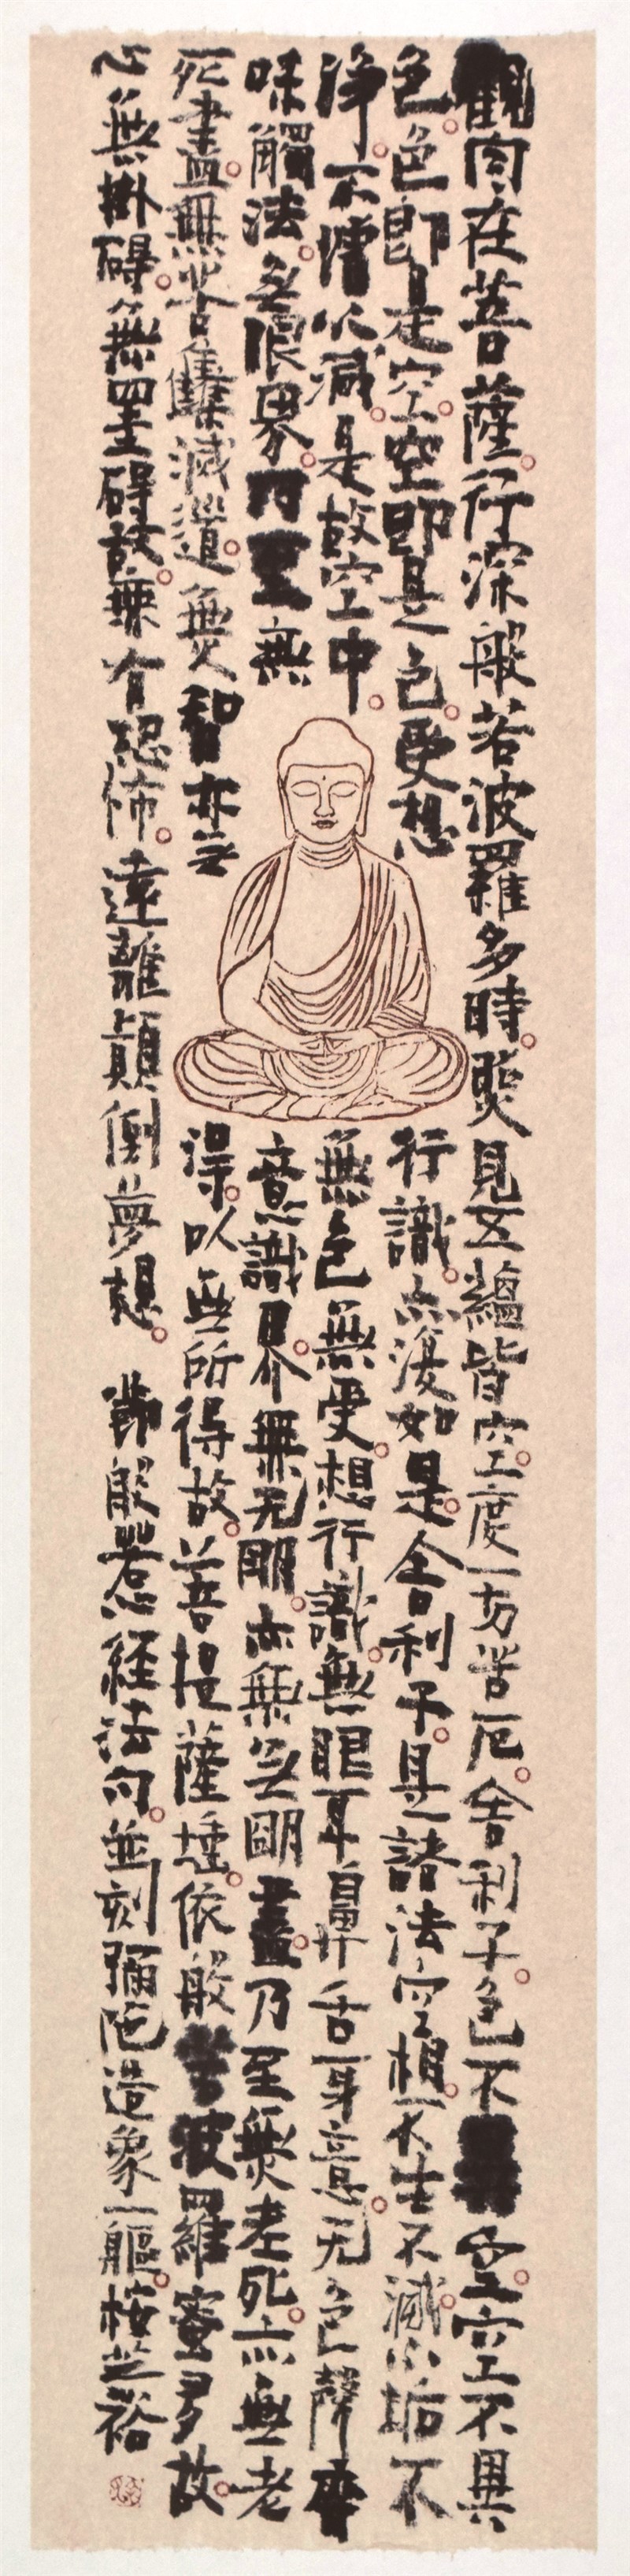 觀自在菩薩。行深般若波羅多時。照見五蘊皆空。度一切苦厄。舍利子。色不異空。空不異
色。色即是空。空即是色。受想行識。亦復如是。舍利子。是諸法空相。不生不滅。不垢不
淨。不增不減。是故空中。無色無受。想行識。無眼耳鼻舌身意。无色聲香
味觸法。无眼界。乃至無意識界。無无明。亦無无明盡。乃至無老死。亦無老
死盡。無苦集滅道。無智亦无得。以無所得故。菩提薩埵。依般若波羅蜜多故。
心無掛碍。無罣碍故。無有恐怖。遠離顛倒夢想。節般若心經法句。並刻彌陀造象一軀。